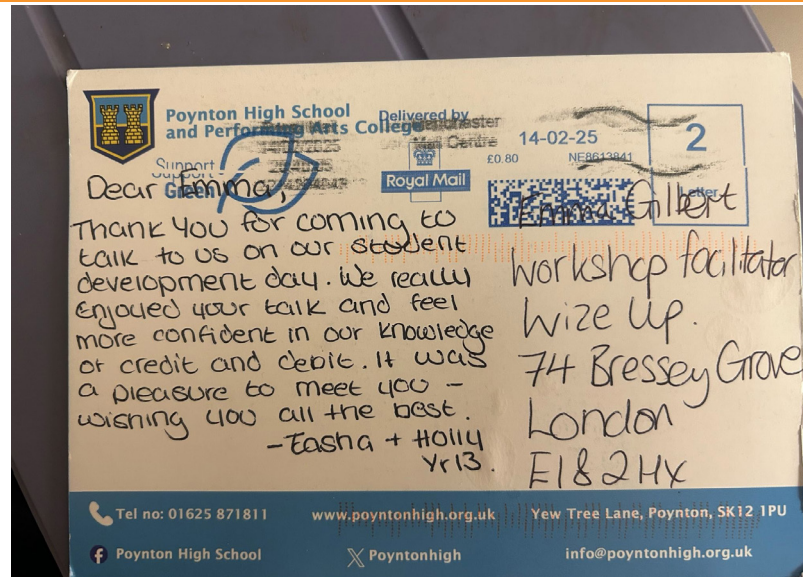 Poynton High School
and Performing Arts College
Delivered by
Royal Mail
14-02-25
£0.80
NE8613841
2
Letter
Support
Dear Emma,
Thank you for coming to
talk to us on our student
development day. We really
enjoyed your talk and feel
more confident in our knowledge
of credit and debit. It was
a pleasure to meet you –
wishing you all the best.
- Tasha + Holly
Yr13.
Emma Gilbert
Workshop facilitator
Wize Up.
74 Bressey Grove
London
E18 2HX
Tel no: 01625 871811
www.poyntonhigh.org.uk
Yew Tree Lane, Poynton, SK12 1PU
Poynton High School
Poyntonhigh
info@poyntonhigh.org.uk